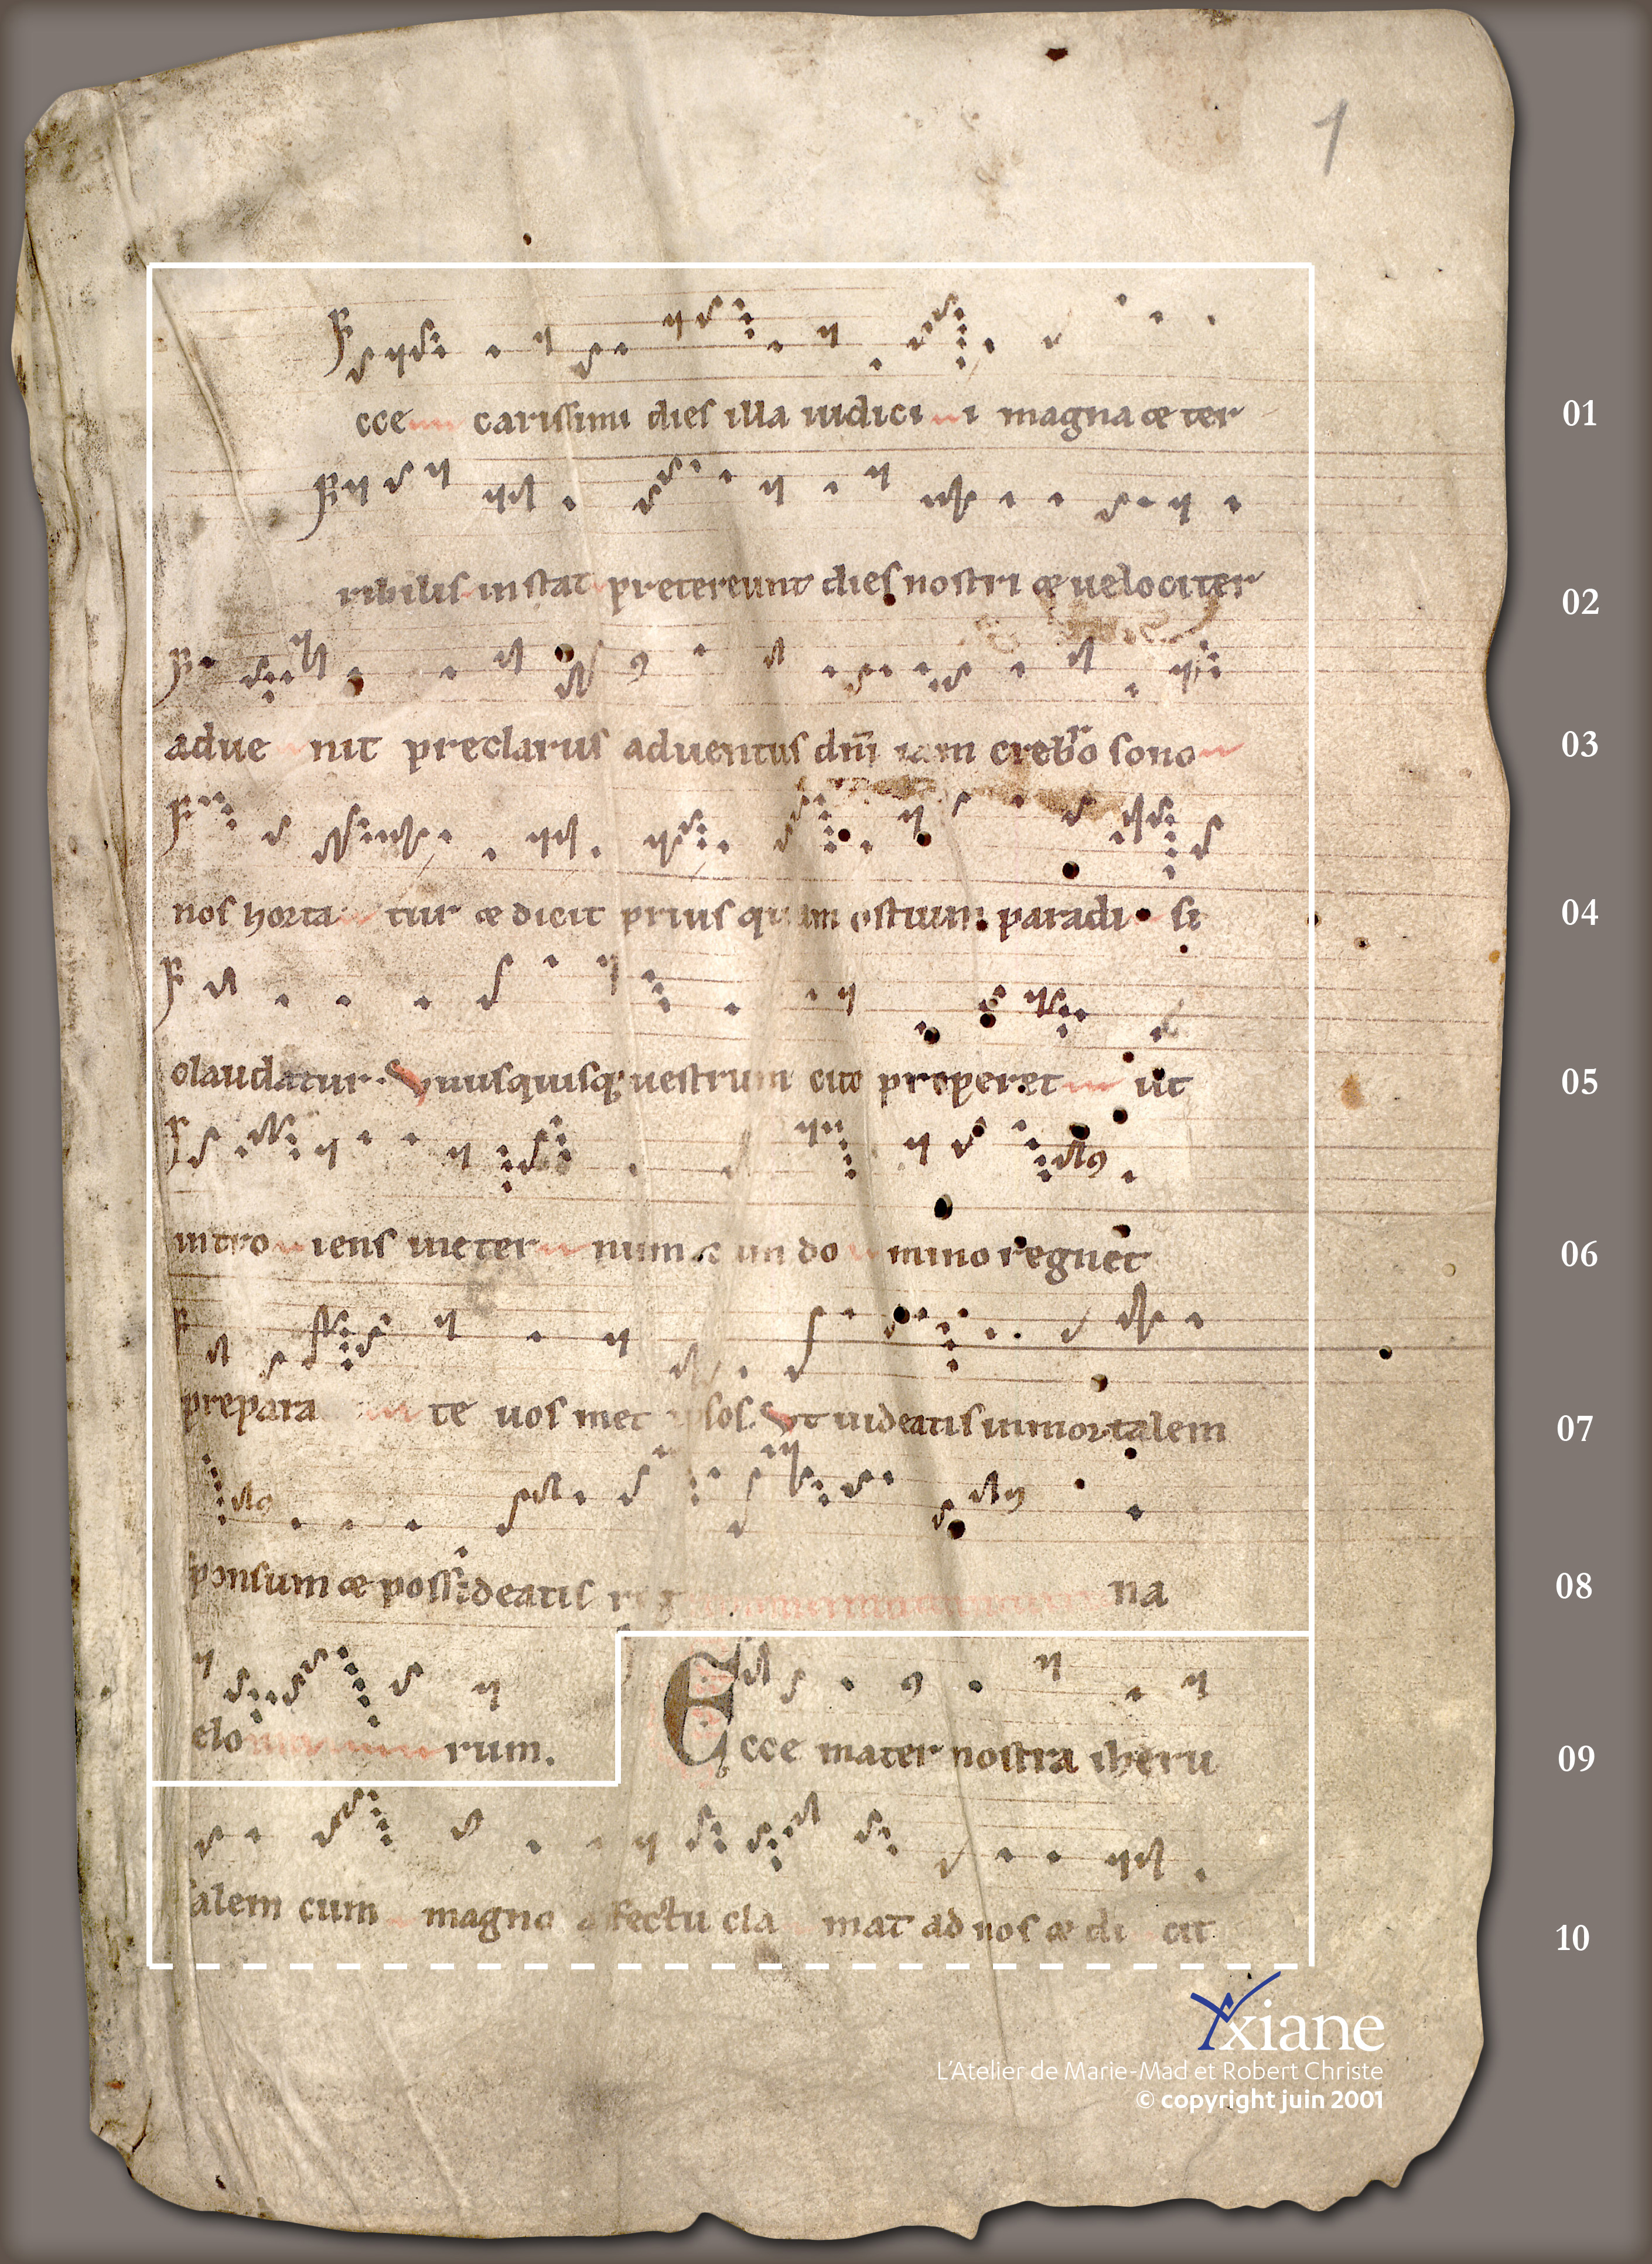 1
cce carissimi dies illa iudici i magna & ter 01
ribilis instat pretereunt dies nostri & uelociter 02
adue nit preclarus aduentus dn̄i iam crebro sono 03
nos horta tur & dicit prius quam ostium paradi si 04
claudatur. Vnusquisq; uestrum cito properet ut 05
intro iens in eter num & in do mino regnet 06
prepara te uos met ipsos. Vt uideatis inmortalem 07
sponsum & possideatis reg na 08
celo rum. Ecce mater nostra iheru 09
salem cum magno affectu cla mat ad nos & di cit 10
Yxiane
L'Atelier de Marie-Mad et Robert Christe
© copyright juin 2001